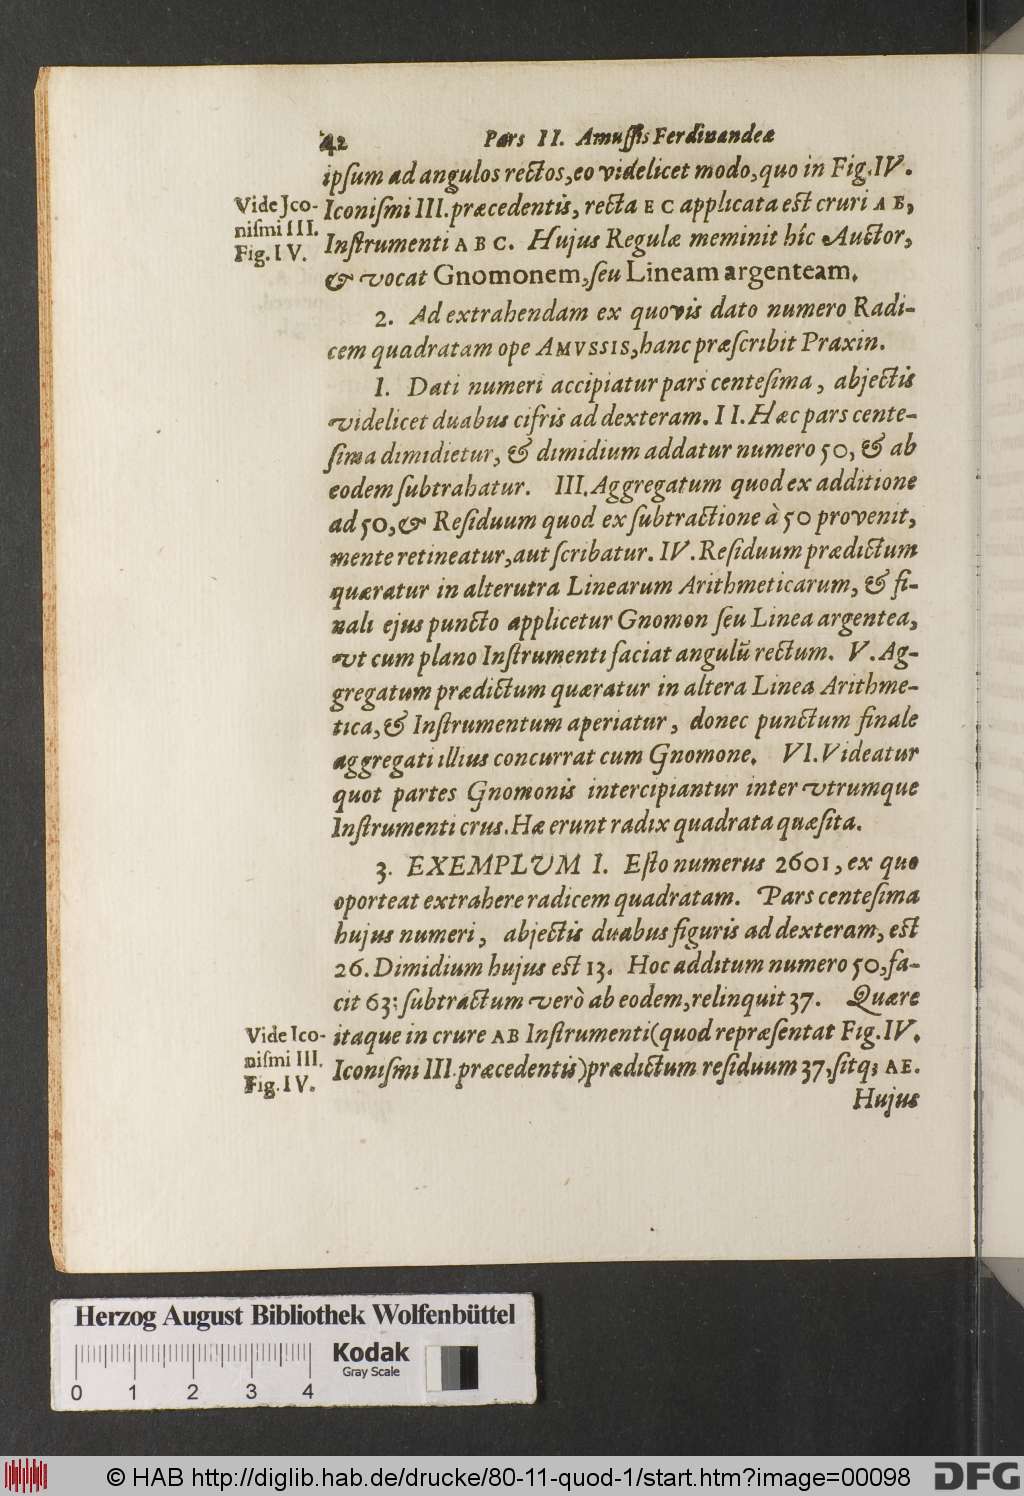 42 Pars II. Amuſſis Ferdinandeæ
ipſum ad angulos rectos, eo videlicet modo, quo in Fig. IV.
Vide Ico-
niſmi III.
Fig. IV.
Iconiſmi III. præcedentis, recta E C applicata est cruri A B,
Inſtrumenti A B C. Hujus Regulæ meminit hîc Auctor,
& vocat Gnomonem, ſeu Lineam argenteam.
2. Ad extrahendam ex quovis dato numero Radi-
cem quadratam ope AMVSSIS, hanc præſcribit Praxin.
I. Dati numeri accipiatur pars centeſima, abjectis
videlicet duabus cifris ad dexteram. II. Hæc pars cente-
ſima dimidietur, & dimidium addatur numero 50, & ab
eodem ſubtrahatur. III. Aggregatum quod ex additione
ad 50, & Reſiduum quod ex ſubtractione à 50 provenit,
mente retineatur, aut ſcribatur. IV. Reſiduum prædictum
quæratur in alterutra Linearum Arithmeticarum, & fi-
nali ejus puncto applicetur Gnomon ſeu Linea argentea,
vt cum plano Inſtrumenti faciat angulū rectum. V. Ag-
gregatum prædictum quæratur in altera Linea Arithme-
tica, & Inſtrumentum aperiatur, donec punctum finale
aggregati illius concurrat cum Gnomone. VI. Videatur
quot partes Gnomonis intercipiantur inter vtrumque
Inſtrumenti crus. Hæ erunt radix quadrata quæſita.
3. EXEMPLUM I. Eſto numerus 2601, ex quo
oporteat extrahere radicem quadratam. Pars centeſima
hujus numeri, abjectis duabus figuris ad dexteram, est
26. Dimidium hujus est 13. Hoc additum numero 50, fa-
cit 63; ſubtractum verò ab eodem, relinquit 37. Quære
Vide Ico-
niſmi III.
Fig. IV.
itaque in crure AB Inſtrumenti (quod repræſentat Fig. IV.
Iconiſmi III. præcedentis) prædictum reſiduum 37, ſitq; AE.
Hujus
Herzog August Bibliothek Wolfenbüttel
Kodak
Gray Scale
0 1 2 3 4
© HAB http://diglib.hab.de/drucke/80-11-quod-1/start.htm?image=00098
DFG